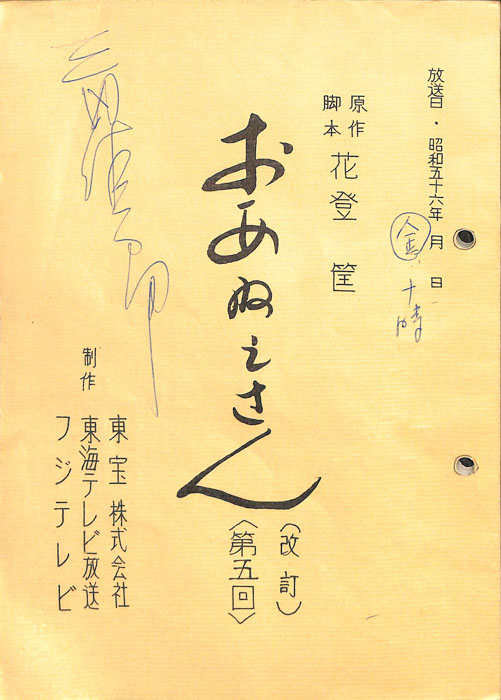 放送日・昭和五十六年 月 日
金 十時
原作
脚本
花登筐
おあねえさん
(改訂)
〈第五回〉
制作
東宝株式会社
東海テレビ放送
フジテレビ